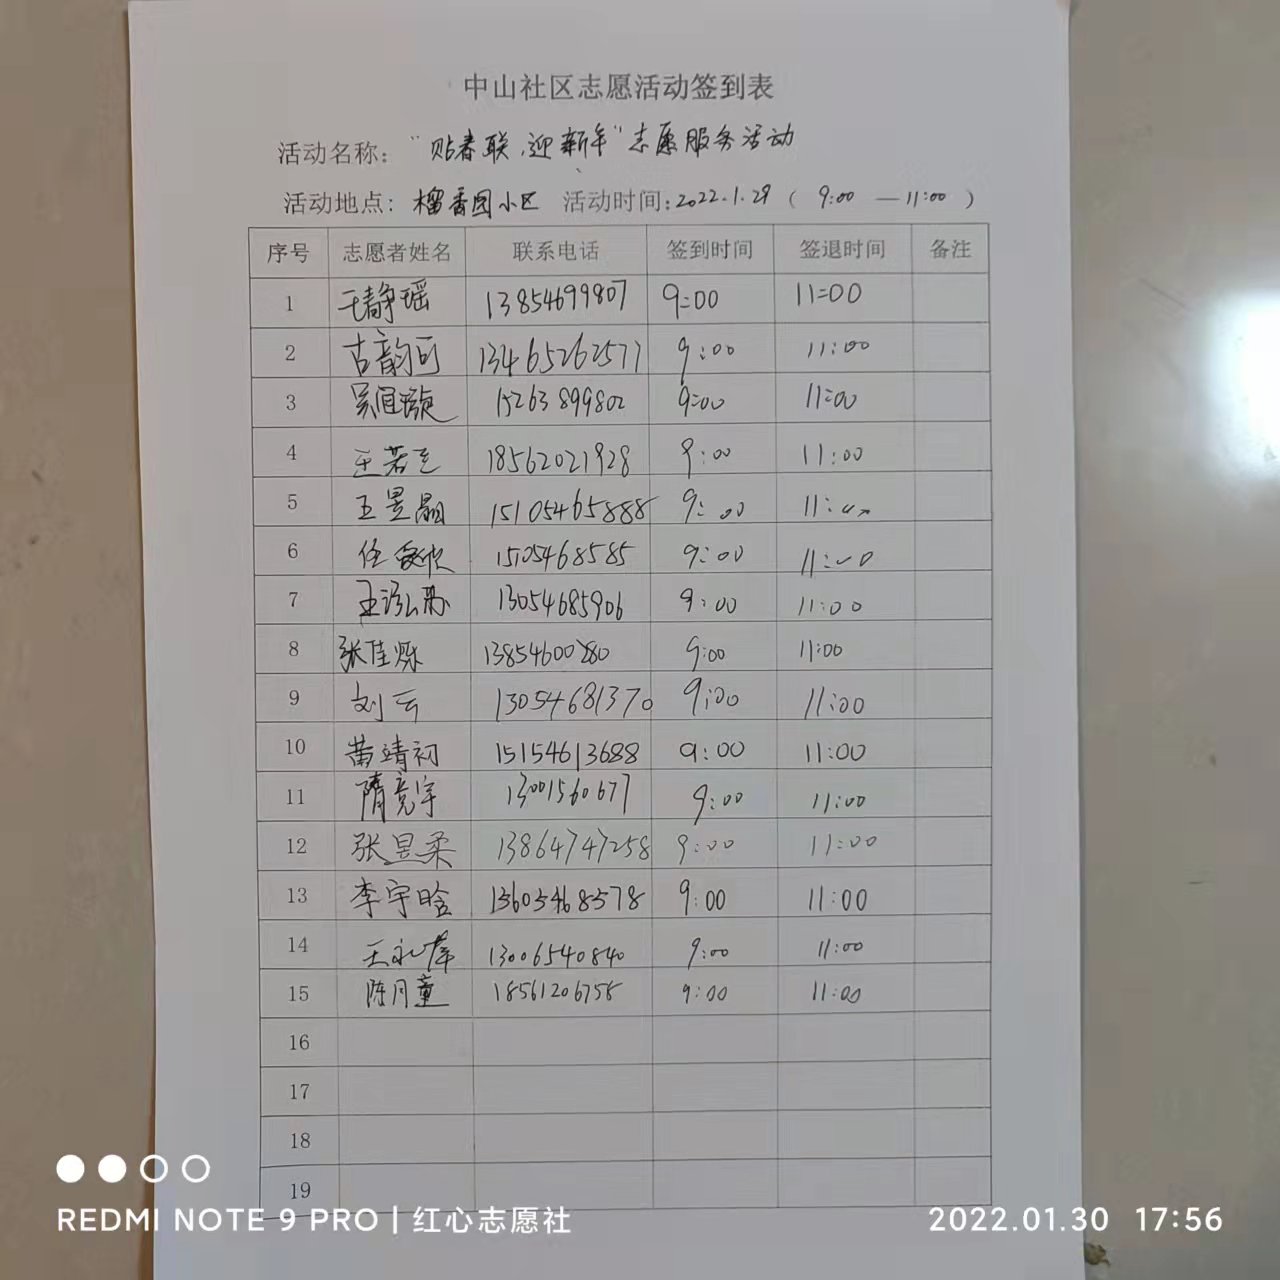 中山社区志愿活动签到表
活动名称："贴春联，迎新年"志愿服务活动
活动地点：榴香园小区 活动时间：2022.1.29（9:00—11:00）
序号 志愿者姓名 联系电话 签到时间 签退时间 备注
1 王静瑶 13854699807 9:00 11:00
2 古韵可 13465262577 9:00 11:00
3 15263899802 9:00 11:00
4 王若 18562021928 9:00 11:00
5 王昱晶 15105465888 9:00 11:00
6 任 15105468585 9:00 11:00
7 王 13054685906 9:00 11:00
8 张佳烁 13854600280 9:00 11:00
9 刘云 13054681370 9:00 11:00
10 黄靖初 15154613688 9:00 11:00
11 隋竞宇 13001560677 9:00 11:00
12 张昱柔 13864747258 9:00 11:00
13 李宇晗 13605468578 9:00 11:00
14 王永萍 13006540840 9:00 11:00
15 陈月童 18561206758 9:00 11:00
16
17
18
19
REDMI NOTE 9 PRO | 红心志愿社
2022.01.30 17:56